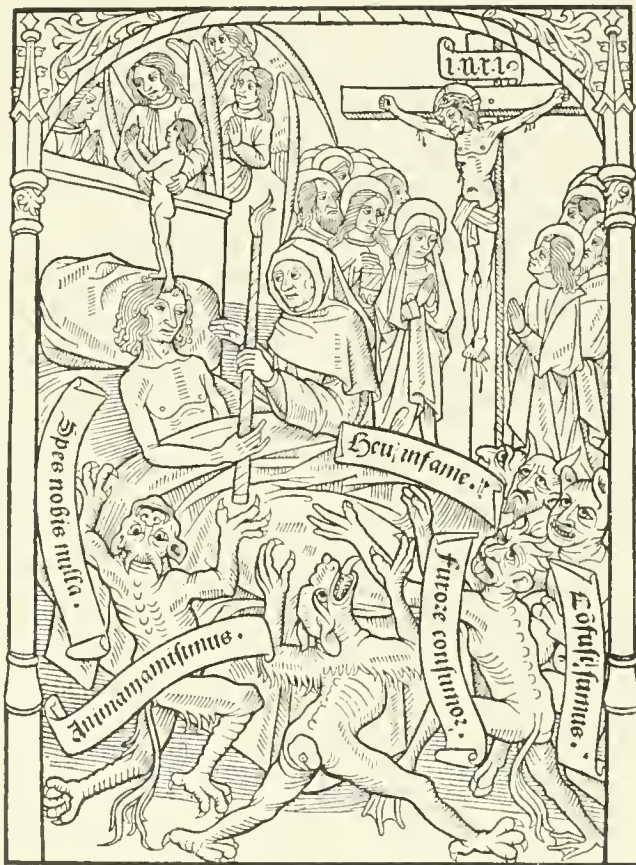 i.n.r.i.
Spes nobis nulla.
Heu insanie.
Animamamisimus.
furore consumor.
Cõfusi sumus.